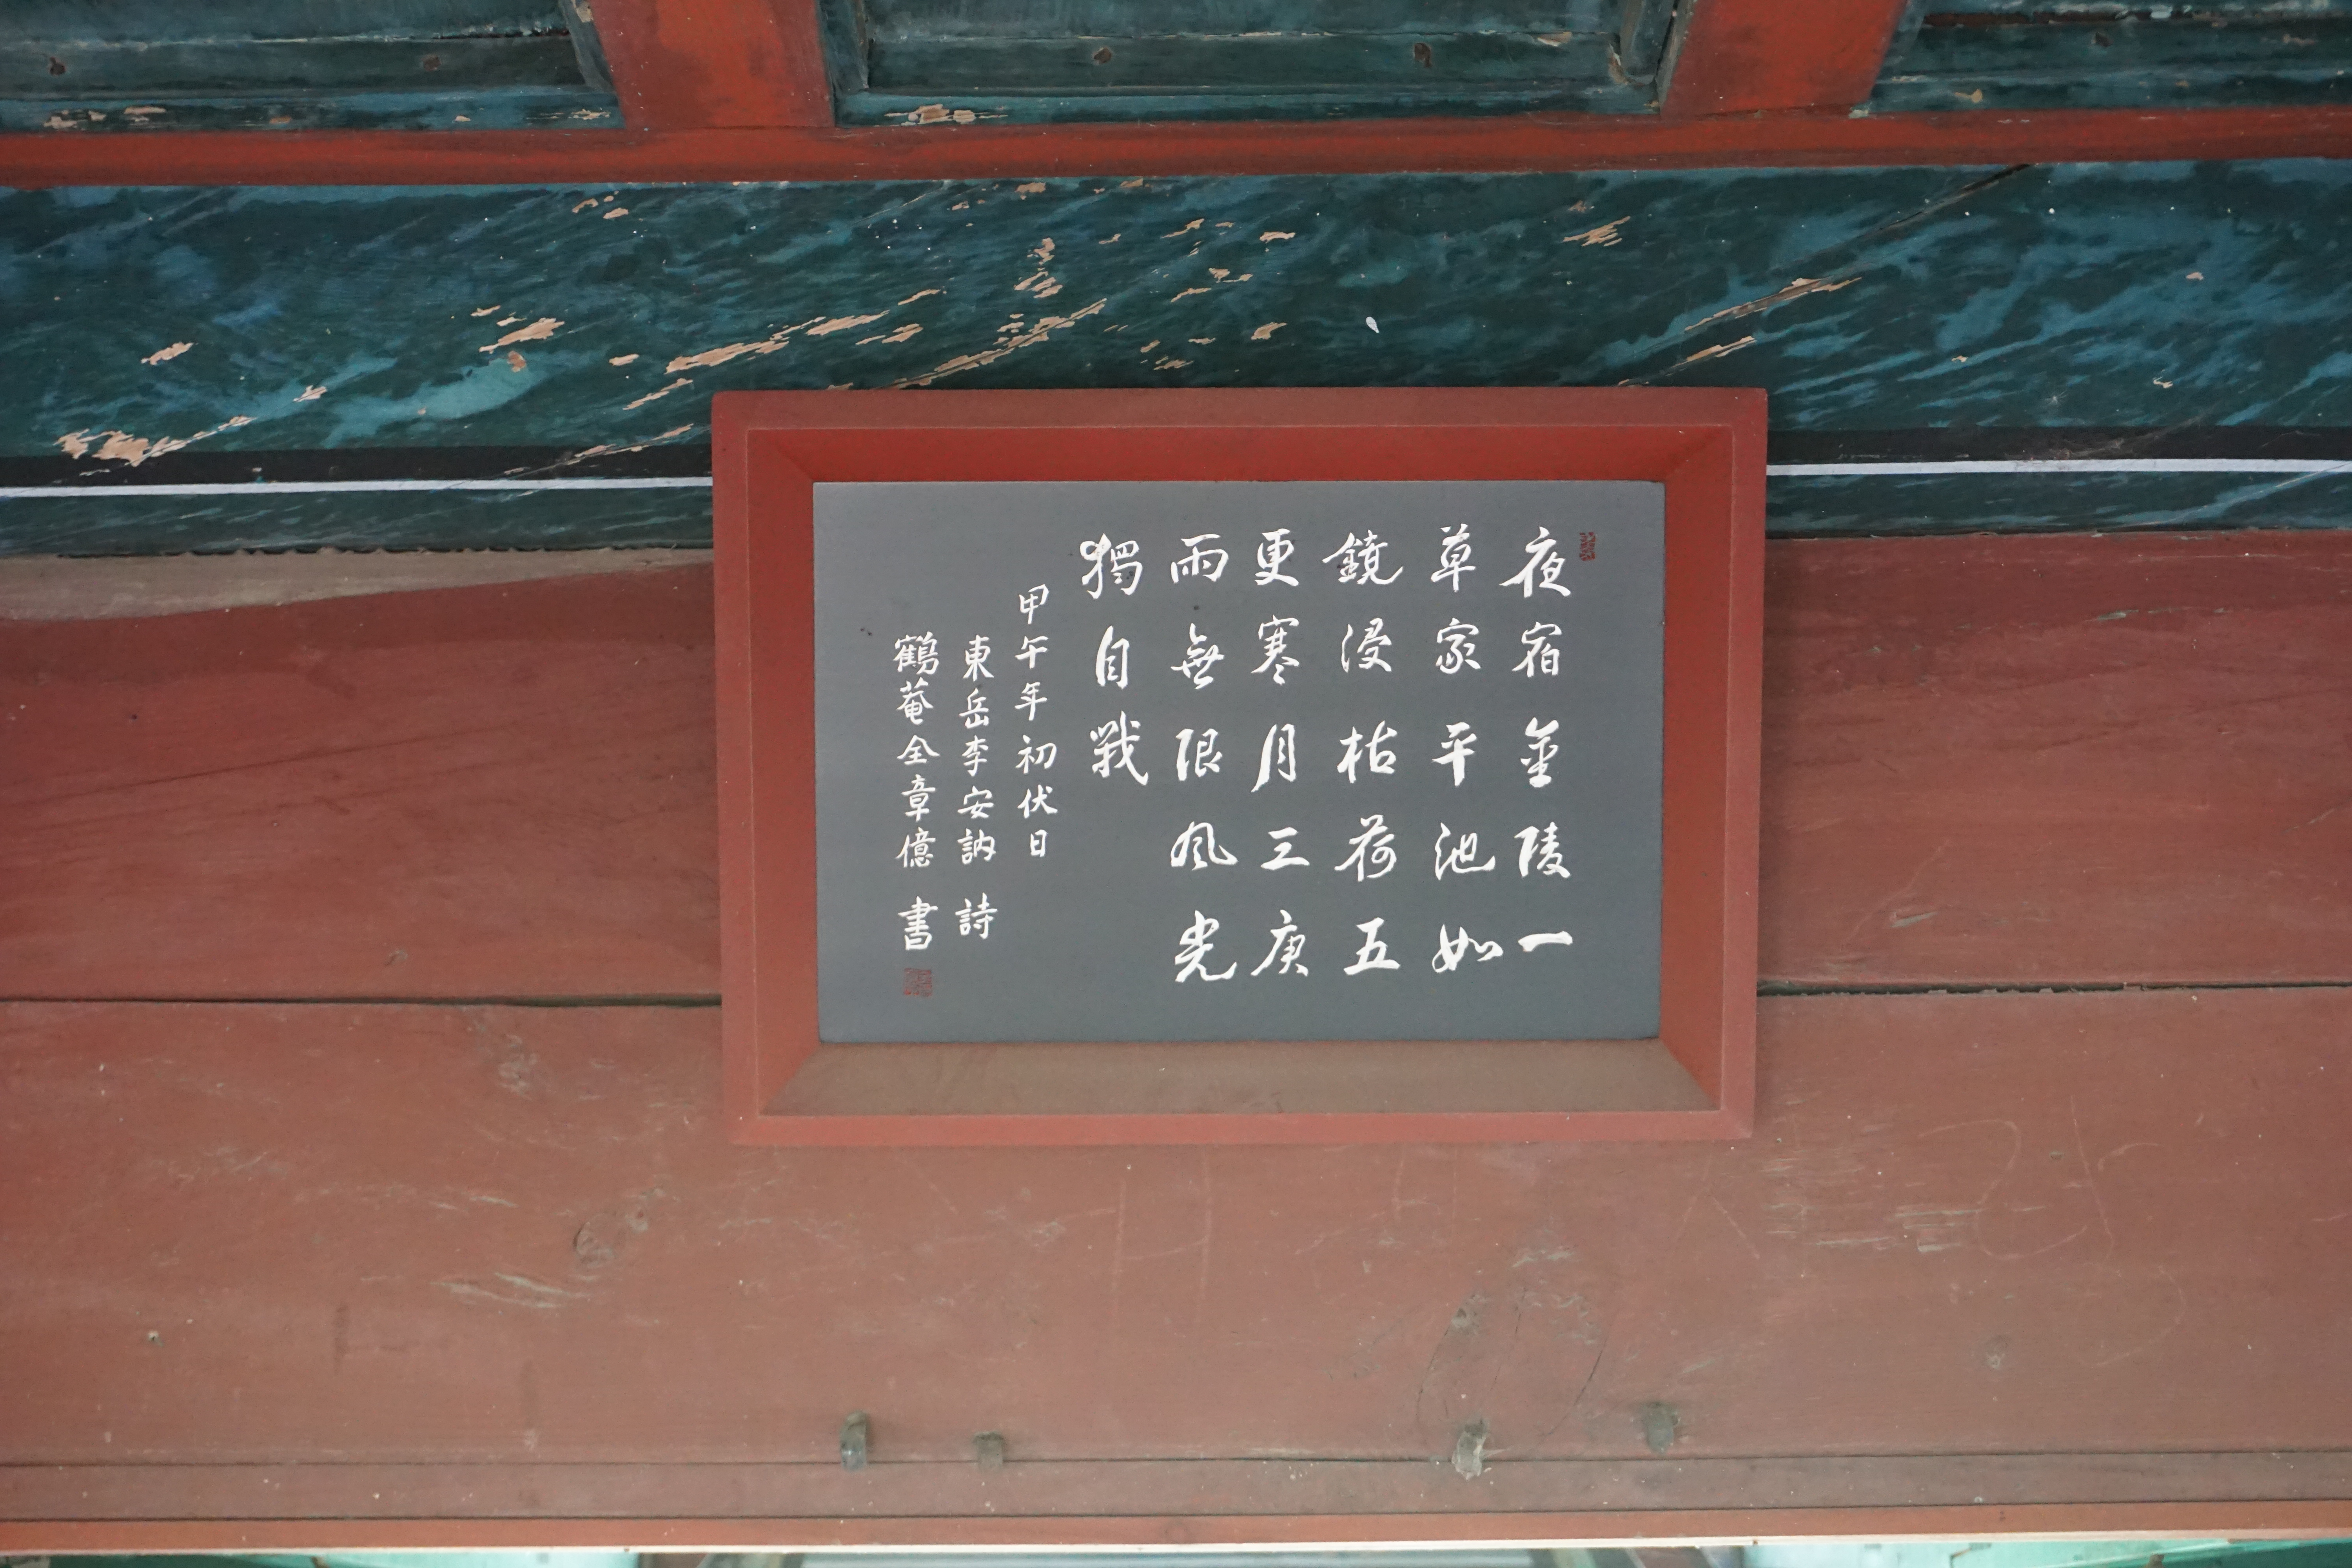 夜宿金陵一
草家平池如
鏡浸枯荷五
更寒月三庚
雨無限風光
獨自戰
甲午年初伏日
東岳李安訥 詩
鶴菴全章億 書